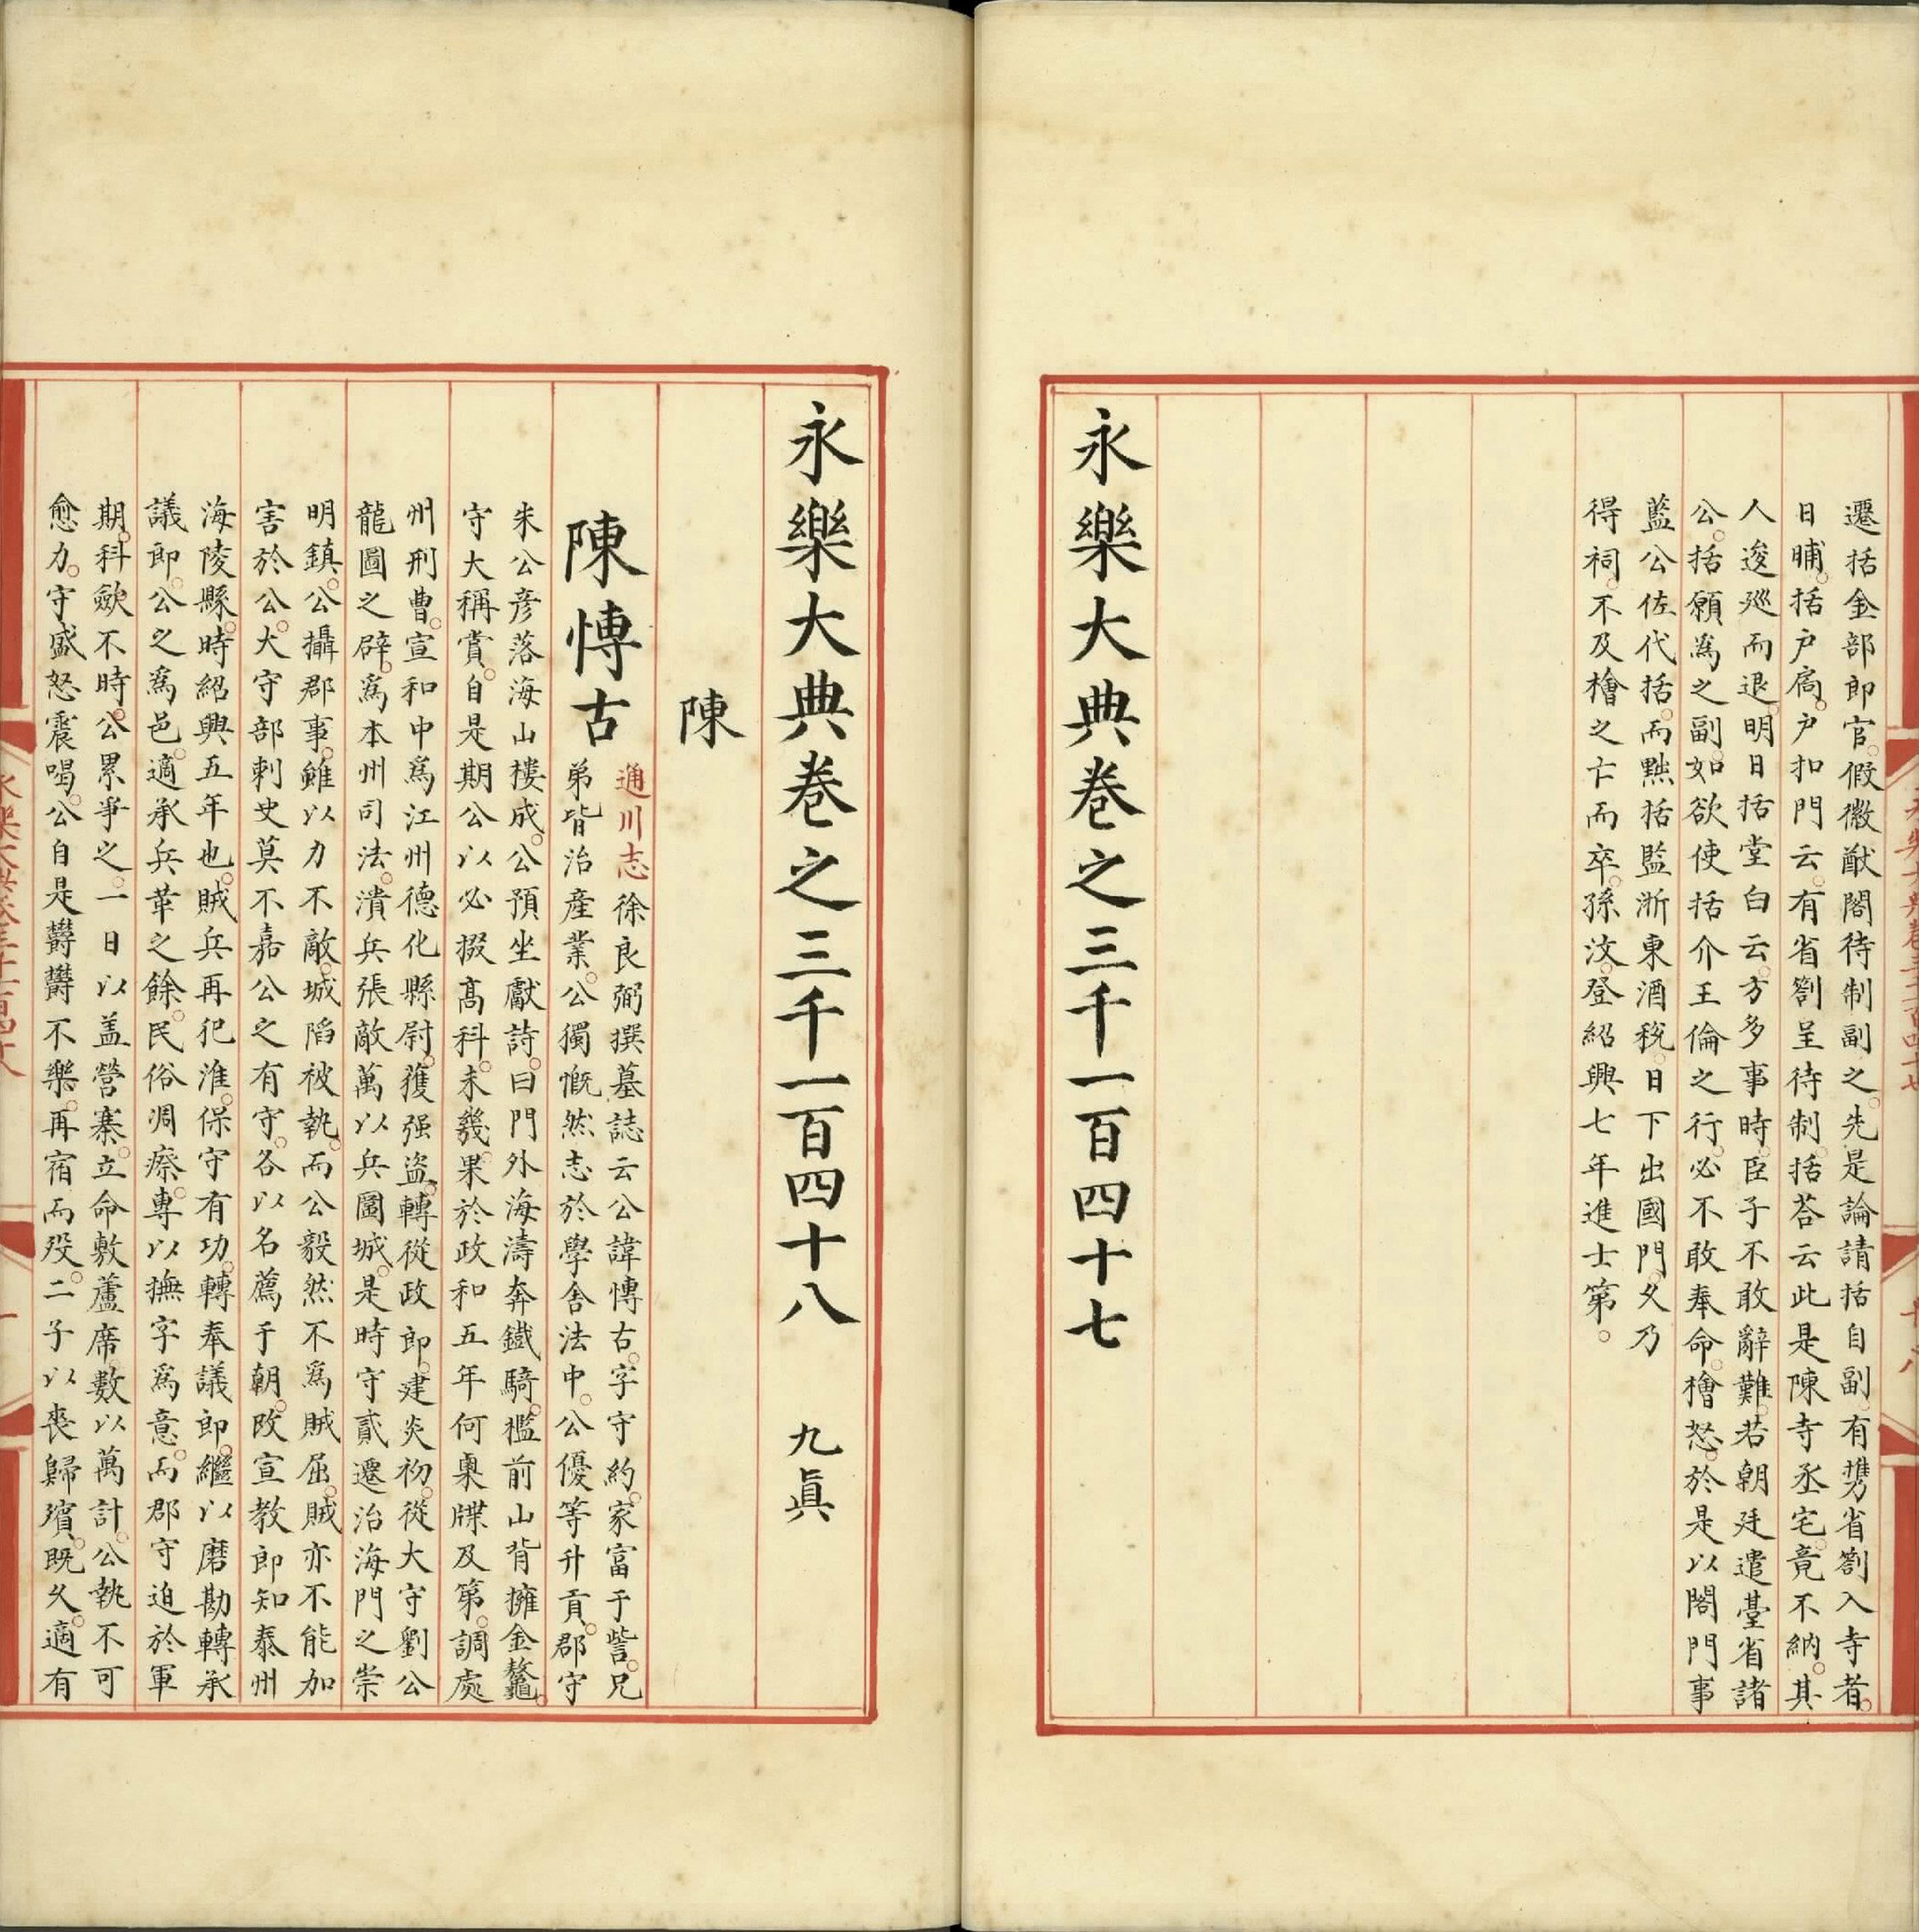 遷括金部郎官假徽猷閣待制副之先是論請括自副有携省劄入寺者
日晡括戶扃戶扣門云有省劄呈待制括荅云此是陳寺丞宅竟不納其
人逡廵而退明日括堂白云方多事時臣子不敢辭難若朝廷遣臺省諸
公括願為之副如欲使括介王倫之行必不敢奉命檜怒於是以閤門事
藍公佐代括而黜括監浙東酒稅日下出國門久乃
得祠不及檜之卞而卒孫汶登紹興七年進士第
永樂大典卷之三千一百四十七
永樂大典卷之三千一百四十八 九眞
陳
陳愽古
通川志徐良弼撰墓誌云公諱愽古字守約家富于訾兄
弟皆治產業公獨慨然志於學舍法中公優等升貢郡守
朱公彥落海山樓成公預坐獻詩曰門外海濤奔鐵騎檻前山背擁金鼇
守大稱賞自是期公以必掇髙科未幾果於政和五年何㮚牒及第調處
州刑曹宣和中為江州德化縣尉獲强盜轉從政郎建炎初從大守劉公
龍圖之辟為本州司法潰兵張敵萬以兵圍城是時守貳遷治海門之崇
明鎮公攝郡事雖以力不敵城陷被執而公毅然不為賊屈賊亦不能加
害於公大守部刺史莫不嘉公之有守各以名薦于朝改宣教郎知泰州
海陵縣時紹興五年也賊兵再犯淮保守有功轉奉議郎繼以磨勘轉承
議郎公之為邑適承兵革之餘民俗凋瘵專以撫字為意而郡守迫於軍
期科歛不時公累爭之一日以盖營寨立命敷蘆席數以萬計公執不可
愈力守盛怒震喝公自是欝欝不樂再宿而歿二子以喪歸殯既久適有